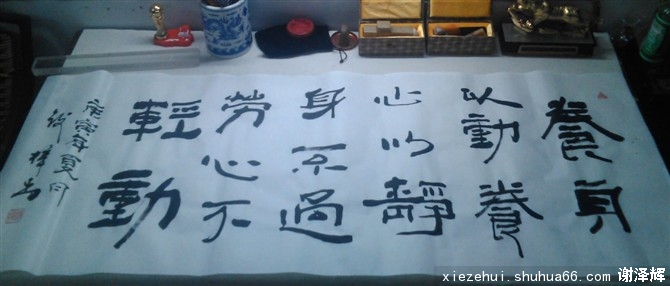 養身
以動養
心以靜
身不過
勞心不
輕動
庚寅年夏月
xiezehui.shuhua66.com 谢泽辉